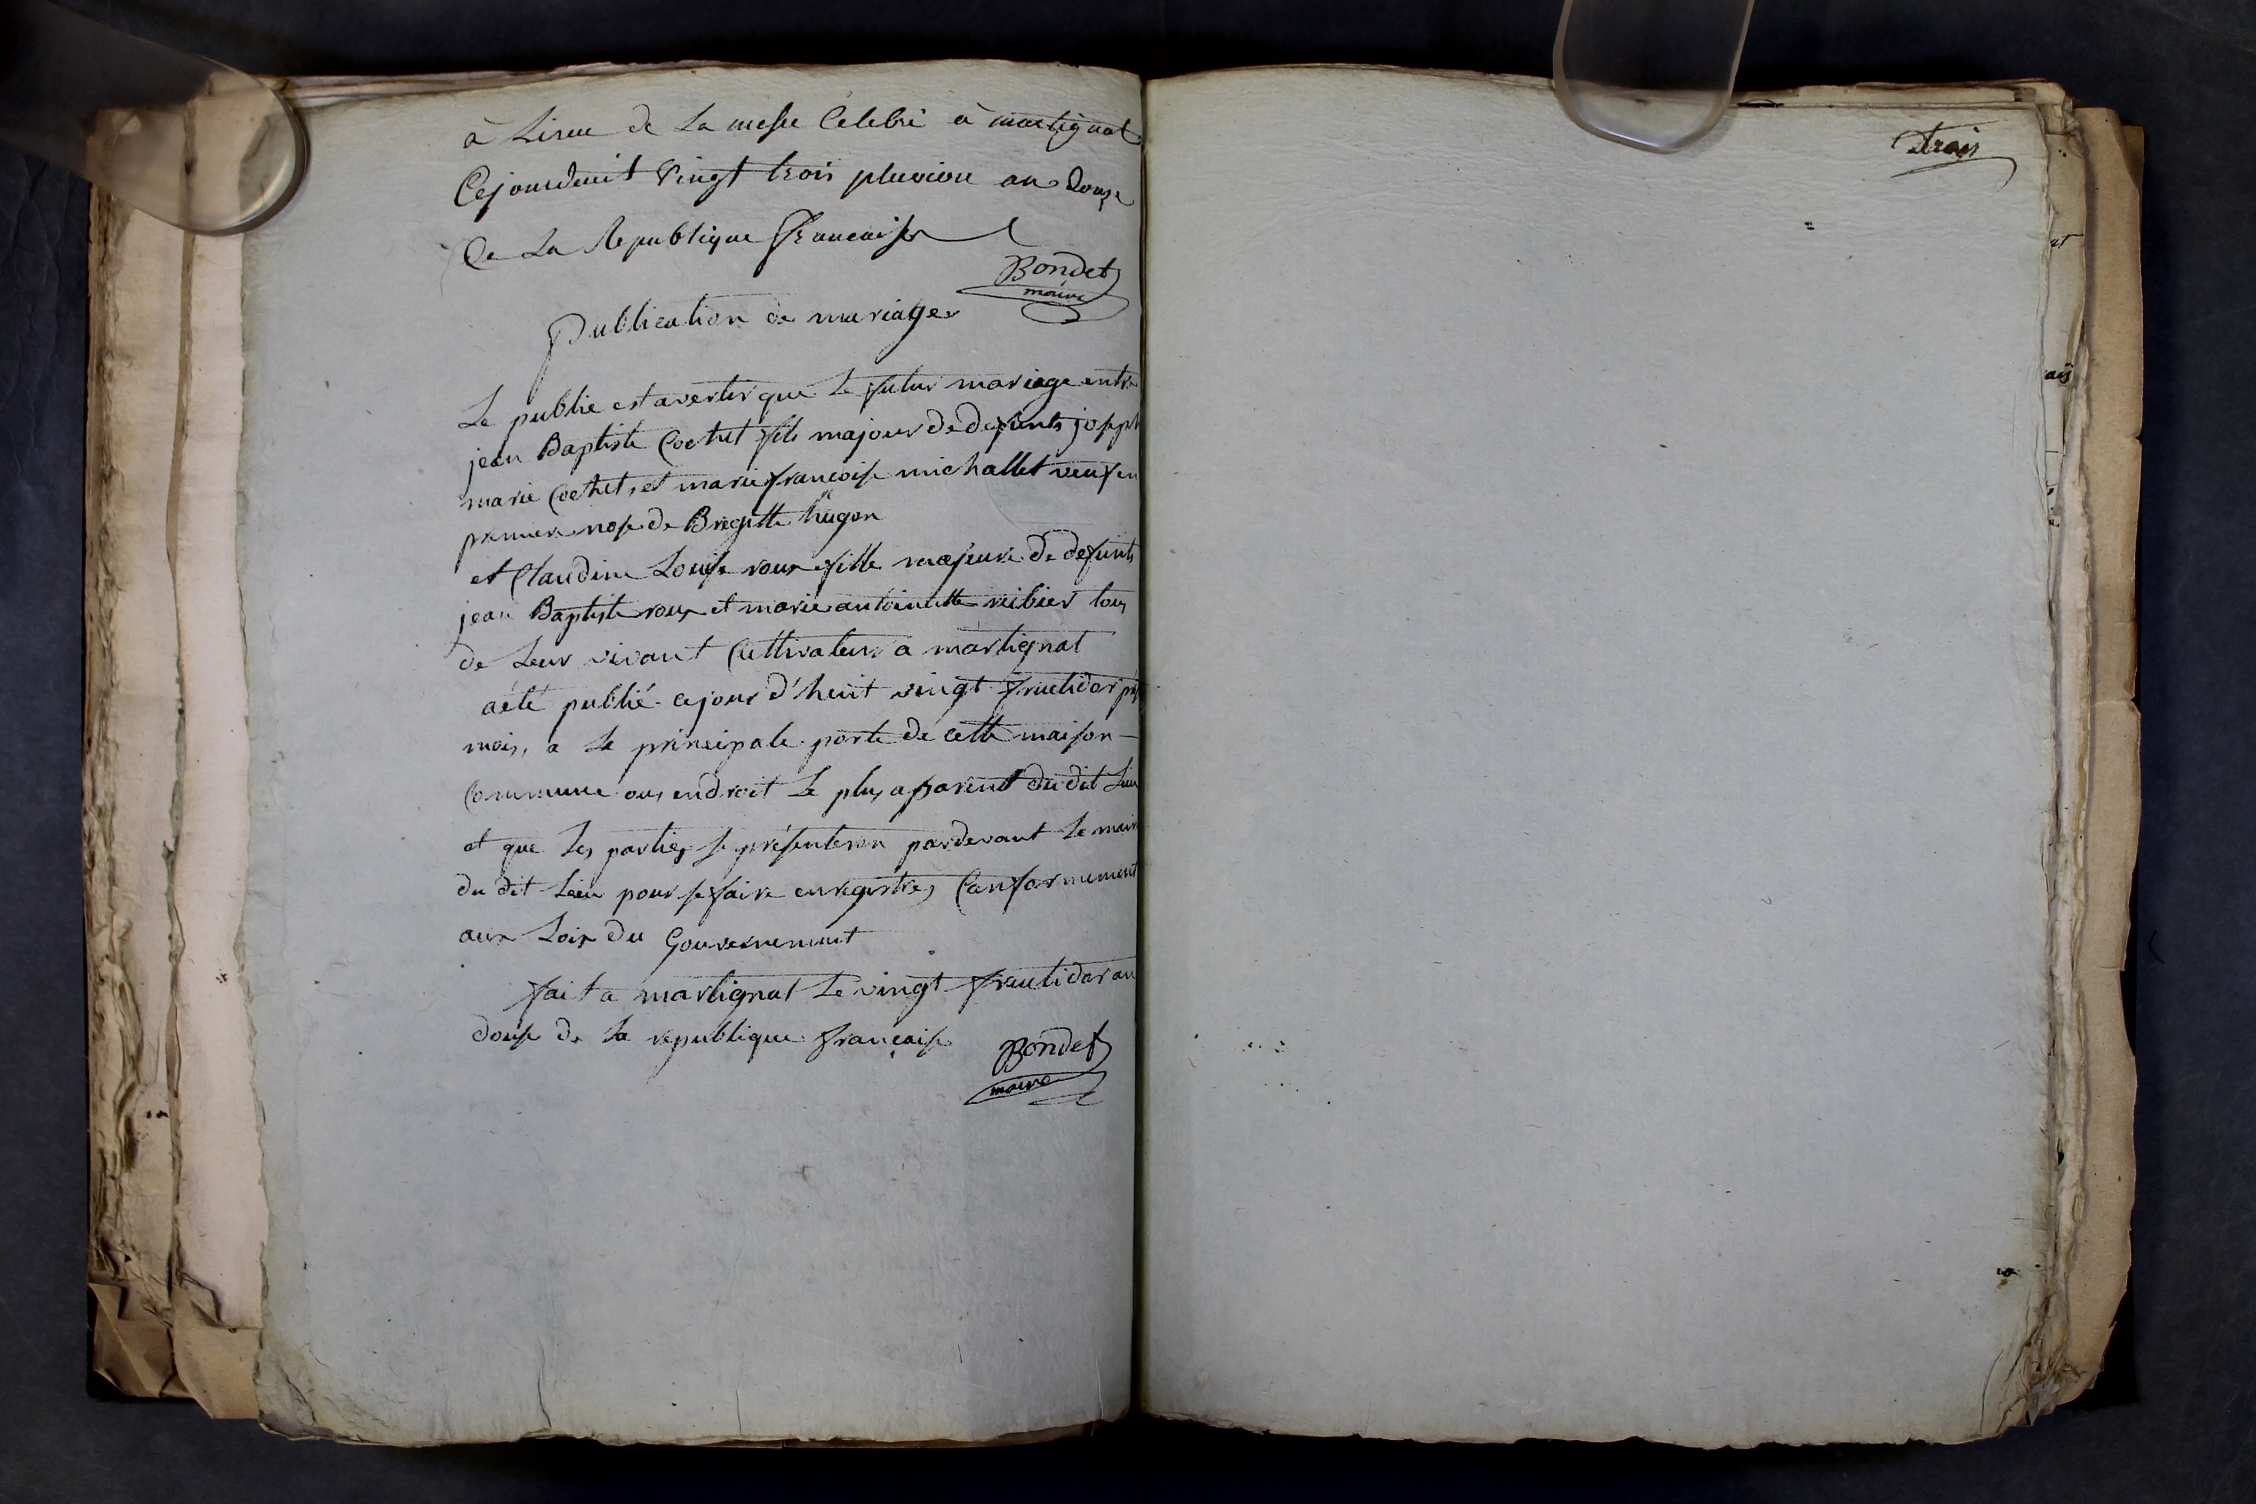 à Lisue de La messe Celebré à martignat
Cejourduit Vingt trois pluviose an douze
De La Republique Francaise
Bondet
maire
Publication de mariage
Le public est avertis que le futur mariage entre
jean Baptiste Cochet fils majour de defunts joseph
marie Cochet, et marie francoise michallet veuf en
premiere nose de Brigitte hugon
et Claudine Louise roux fille majeure de defunts
jean Baptiste roux et marie antoinette reibier tous
de leur vivant Cultivateur a martignat
a été publié cejour d'huit vingt fructidor
mois, a la principale porte de cette maison
Commune ou, endroit le plus aparent du dit Lieu
et que les parties se présenteron pardevant le maire
du dit Lieu pour se faire enregistres Conformement
aux Loix du Gouvernement
fait a martignat le vingt fructidor an
douse de la republique française
Bondet
maire
trois